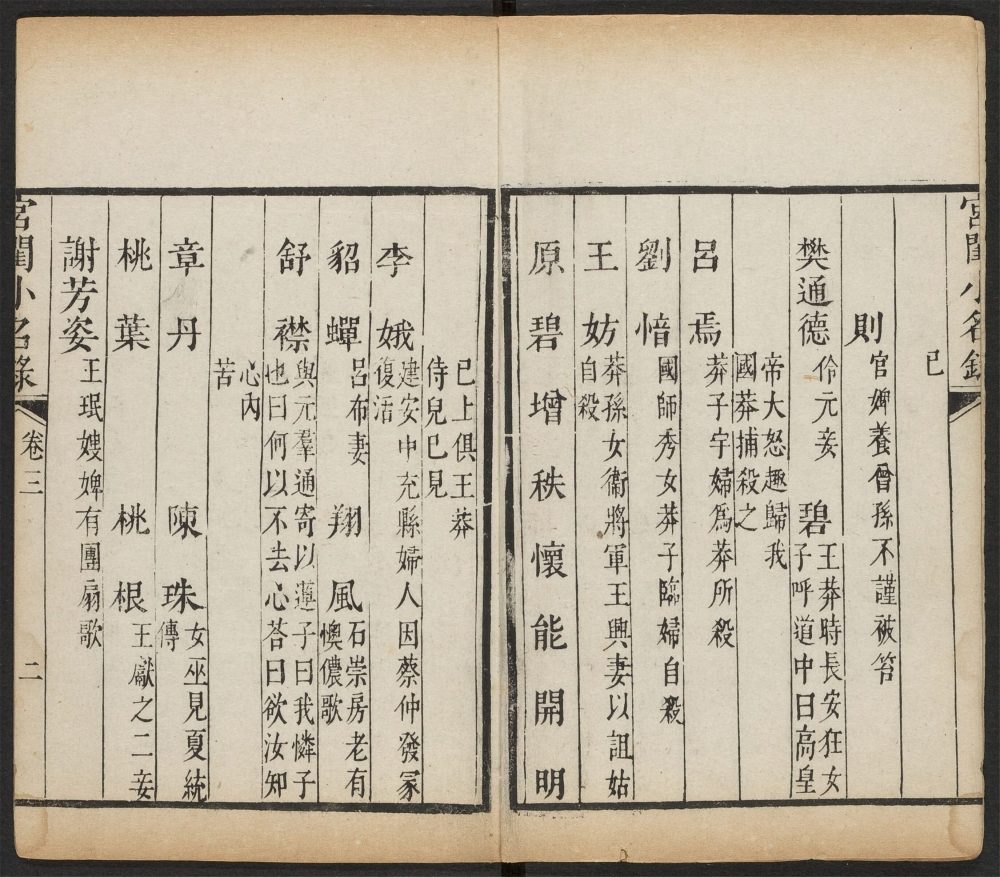 宮閨小名錄
已
則官婢養曾孫不謹被笞
樊通德伶元妾　碧王莽時長安狂女子呼道中曰高皇
帝大怒趣歸我國莽捕殺之
呂焉莽子宇婦爲莽所殺
劉愔國師秀女莽子臨婦自殺
王妨莽孫女衞將軍王興妻以詛姑自殺
原碧　增秩　懷能　開明
已上俱王莽侍兒已見
李娥建安中充縣婦人因蔡仲發冢復活
貂蟬呂布妻　翔風石崇房老有懊儂歌
舒襟與元羣通寄以蓮子曰我憐子也曰何以不去心荅曰欲汝知
心內苦
章丹　陳珠女巫見夏統傳
桃葉　桃根王獻之二妾
謝芳姿王珉嫂婢有團扇歌
宮閨小名錄　卷三　二